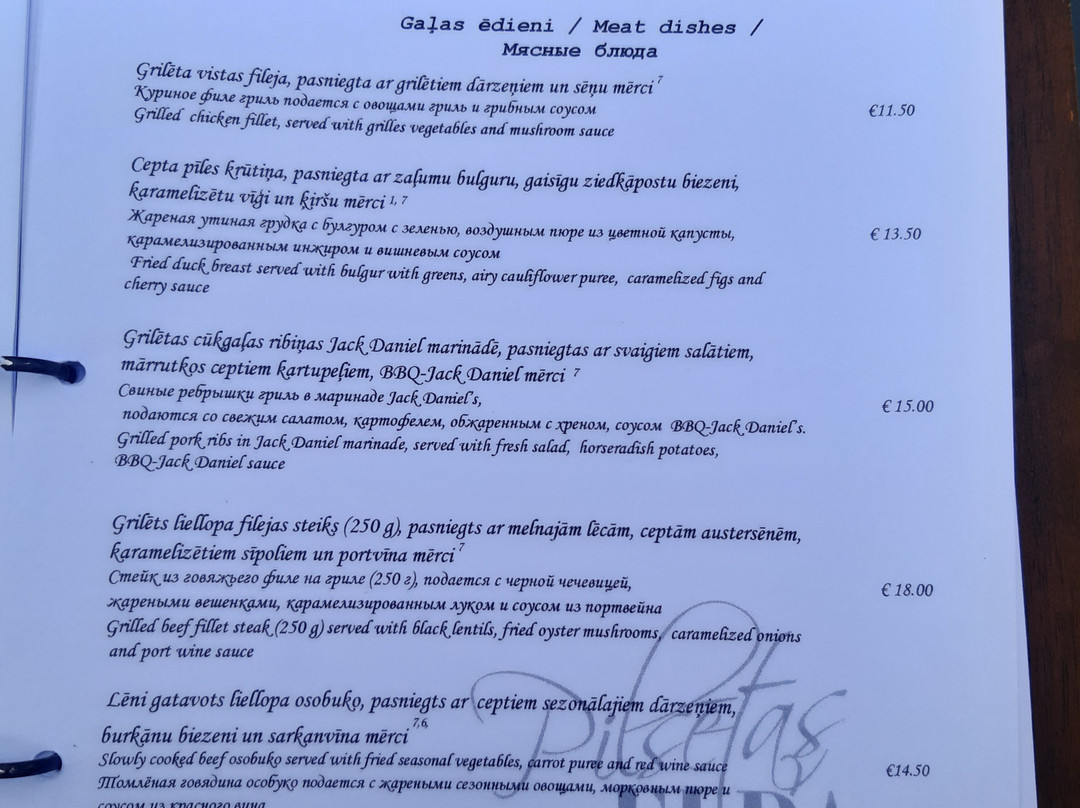 Gaļas ēdieni / Meat dishes /
Мясные блюда
Grilēta vistas fileja, pasniegta ar grilētiem dārzeņiem un sēņu mērci 7
Куриное филе гриль подается с овощами гриль и грибным соусом
Grilled chicken fillet, served with grilles vegetables and mushroom sauce
€11.50
Cepta pīles krūtiņa, pasniegta ar zaļumu bulguru, gaisīgu ziedkāpostu biezeni,
karamelizētu vīģi un ķiršu mērci 1, 7
Жареная утиная грудка с булгуром с зеленью, воздушным пюре из цветной капусты,
карамелизированным инжиром и вишневым соусом
Fried duck breast served with bulgur with greens, airy cauliflower puree, caramelized figs and
cherry sauce
€ 13.50
Grilētas cūkgaļas ribiņas Jack Daniel marinādē, pasniegtas ar svaigiem salātiem,
mārrutkos ceptiem kartupeļiem, BBQ-Jack Daniel mērci 7
Свиные ребрышки гриль в маринаде Jack Daniel's,
подаются со свежим салатом, картофелем, обжаренным с хреном, соусом BBQ-Jack Daniel's.
Grilled pork ribs in Jack Daniel marinade, served with fresh salad, horseradish potatoes,
BBQ-Jack Daniel sauce
€ 15.00
Grilēts liellopa filejas steiks (250 g), pasniegts ar melnajām lēcām, ceptām austersēnēm,
karamelizētiem sīpoliem un portvīna mērci 7
Стейк из говяжьего филе на гриле (250 г), подается с черной чечевицей,
жареными вешенками, карамелизированным луком и соусом из портвейна
Grilled beef fillet steak (250 g) served with black lentils, fried oyster mushrooms, caramelized onions
and port wine sauce
€ 18.00
Lēni gatavots liellopa osobuko, pasniegts ar ceptiem sezonālajiem dārzeņiem,
burkānu biezeni un sarkanvīna mērci 7,6,
Slowly cooked beef osobuko served with fried seasonal vegetables, carrot puree and red wine sauce
Томлёная говядина особуко подается с жареными сезонными овощами, морковным пюре и
соусом из красного вина
€14.50
Pilsētas